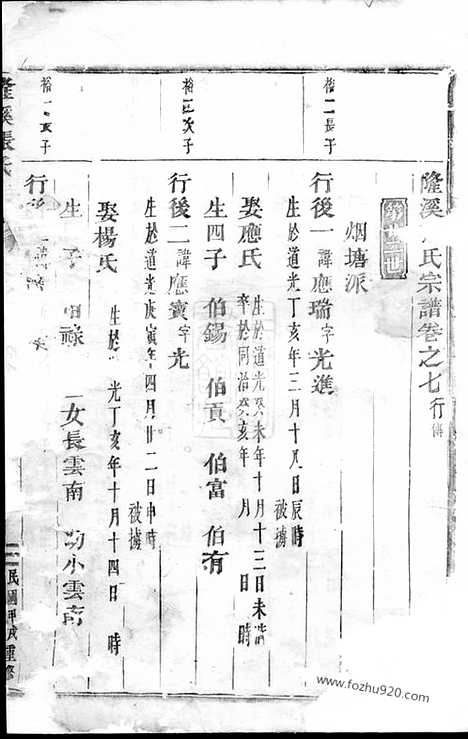 隆溪 氏宗譜卷之七行傳
烟塘派
裕二長子
行後一諱應瑞字光進
生於道光丁亥年三月十九日辰時
被擄
娶應氏
生於道光癸未年十月十三日未時
卒於同治癸亥年 月 日 時
生四子 伯錫 伯貢 伯富 伯有
裕三次子
行後二諱應賓字光
生於道光庚寅年四月廿二日申時
被擄
娶楊氏
生於 光丁亥年十月十四日 時
生 子 祿 一女長雲南 幼小雲南
行
隆溪張氏
民國甲戌重修
www.fozhu920.com